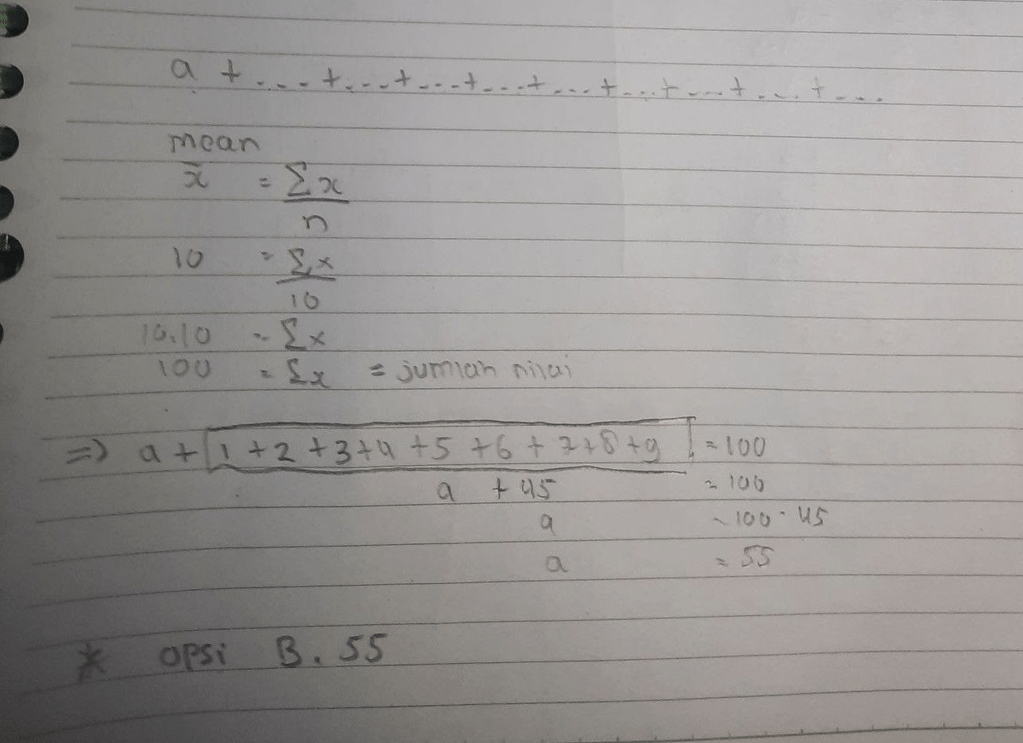 a + .... + ... + ... + ... + ... + ... + ... + ... + ...
mean
x̄ = Σx
n
10 = Σx
10
10.10 = Σx
100 = Σx = jumlah nilai
=> a + [1 + 2 + 3 + 4 + 5 + 6 + 7 + 8 + 9] = 100
a + 45 = 100
a = 100 - 45
a = 55
* opsi B. 55